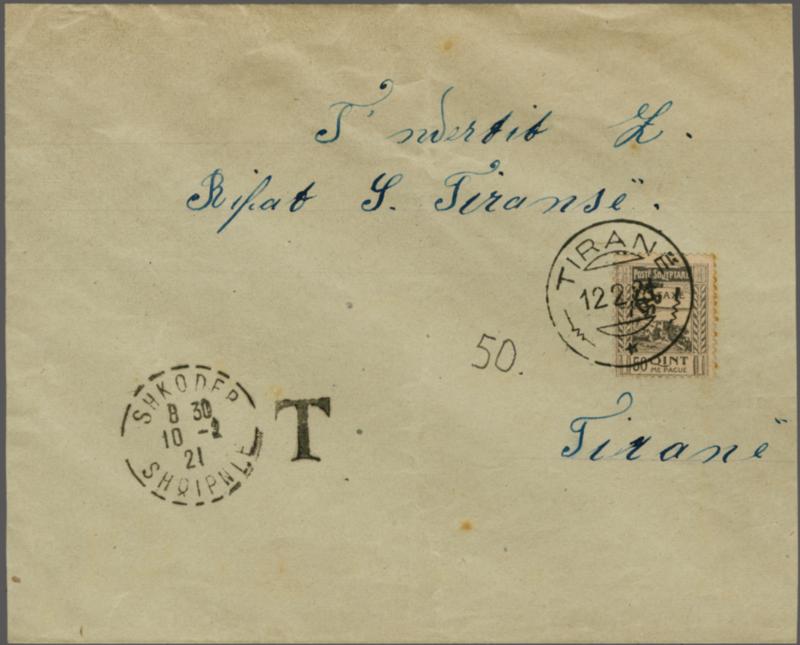 T' ndertit Z.
Rifat S. Tiransë.
TIRANË
12.2.21
POSTE SHQYPTARE
TAXE
50 QINT
ME PAGUE
50.
SHKODER
8 30
10 -2
21
SHQIPNIE
T
Tiranë